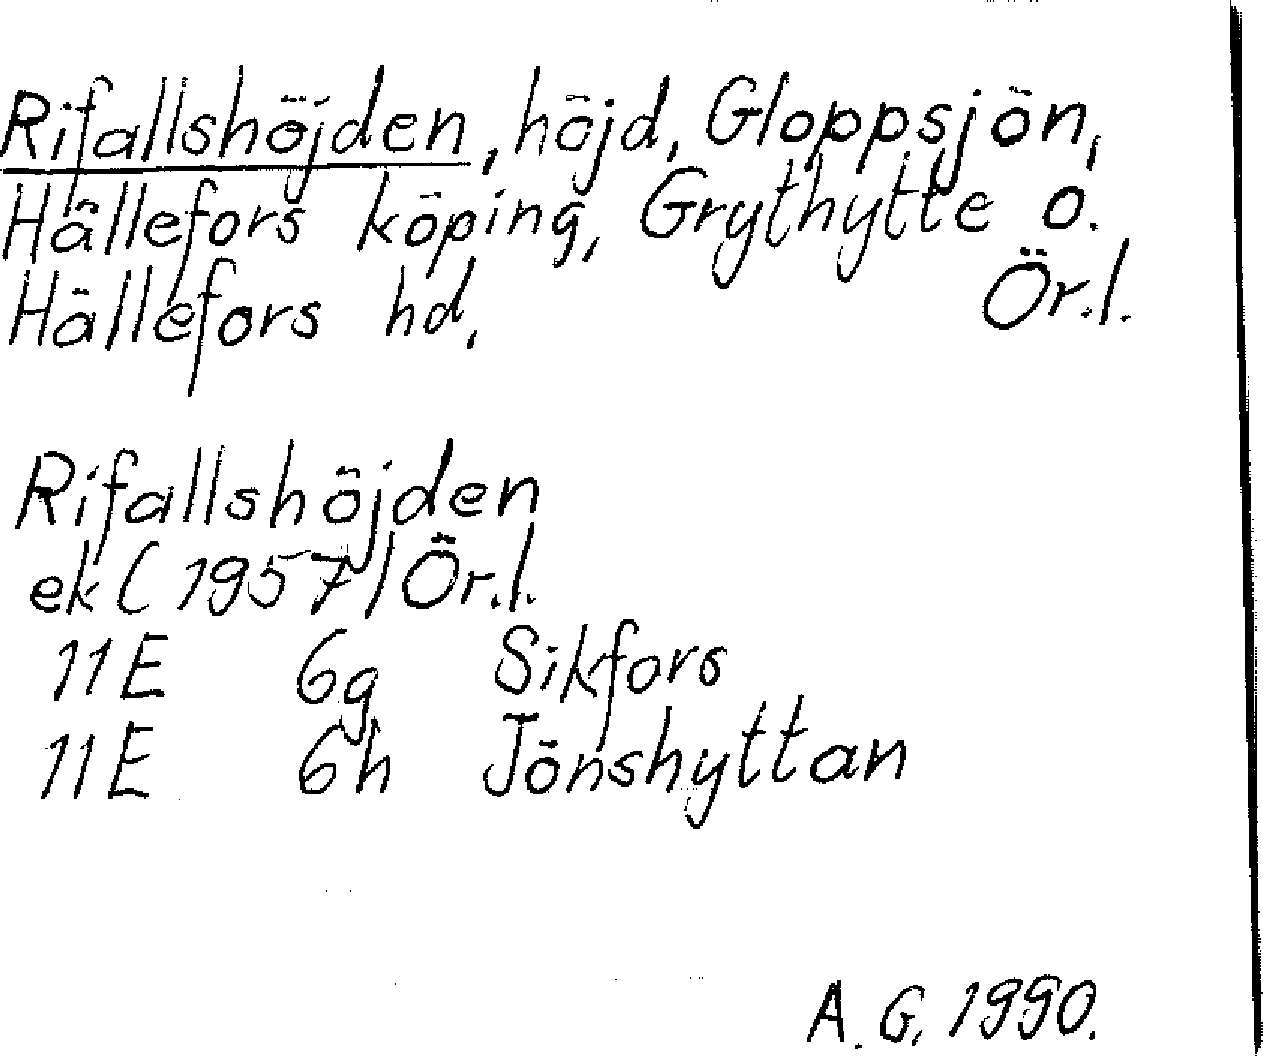 Rifallshöjden, höjd, Gloppsjön,
Hällefors köping, Grythytte o.
Hällefors hd. Ör.l.
Rifallshöjden
ek (1957) Ör.l.
11E 6g Sikfors
11E 6h Jönshyttan
A. G. 1990.